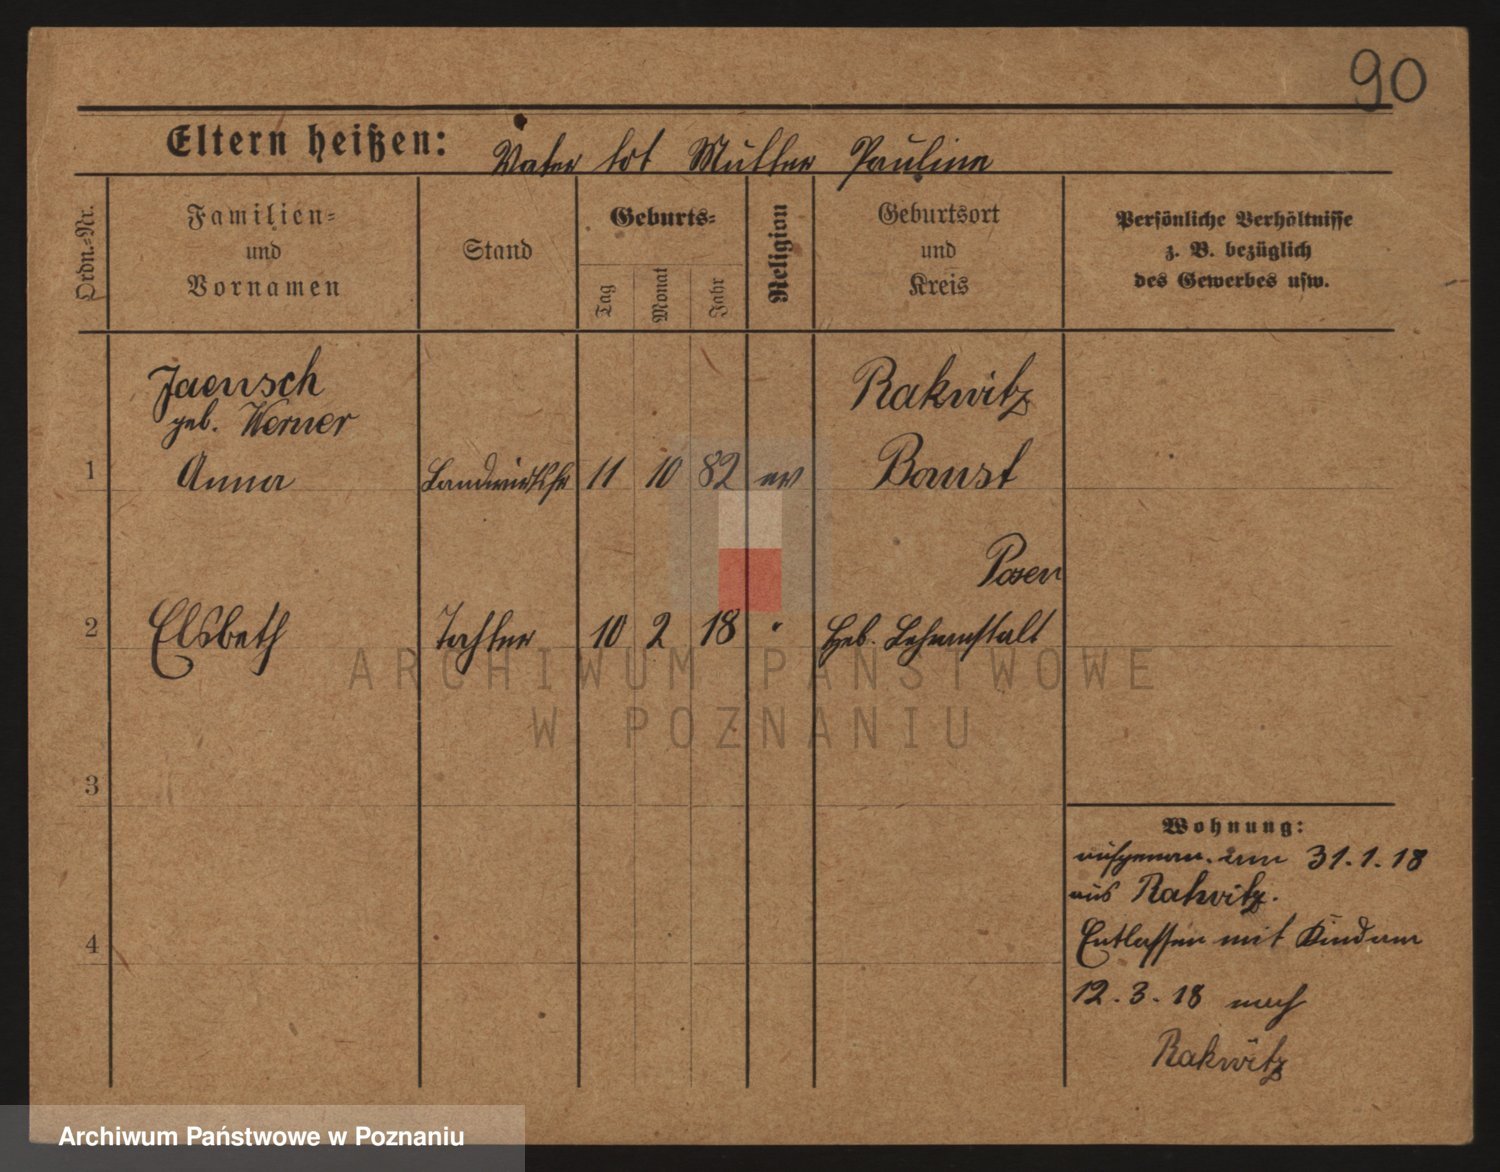 90
Eltern heißen: Vater tot Mutter Pauline
Ordn.=Nr.
Familien=
und
Vornamen
Stand
Geburts=
Tag
Monat
Jahr
Religion
Geburtsort
und
Kreis
Persönliche Verhältnisse
z. B. bezüglich
des Gewerbes usw.
Jaensch
geb. Werner
1 Anna 11 10 82 ev
Rakwitz
Bomst
2 Elsbeth Tochter 10 2 18 "
Posen
Heb. Lehranstalt
3
4
Wohnung:
aufgenom. am 31.1.18
aus Rakwitz.
Entlassen mit Kind am
12.3.18 nach
Rakwitz
ARCHIWUM PAŃSTWOWE
W POZNANIU
Archiwum Państwowe w Poznaniu